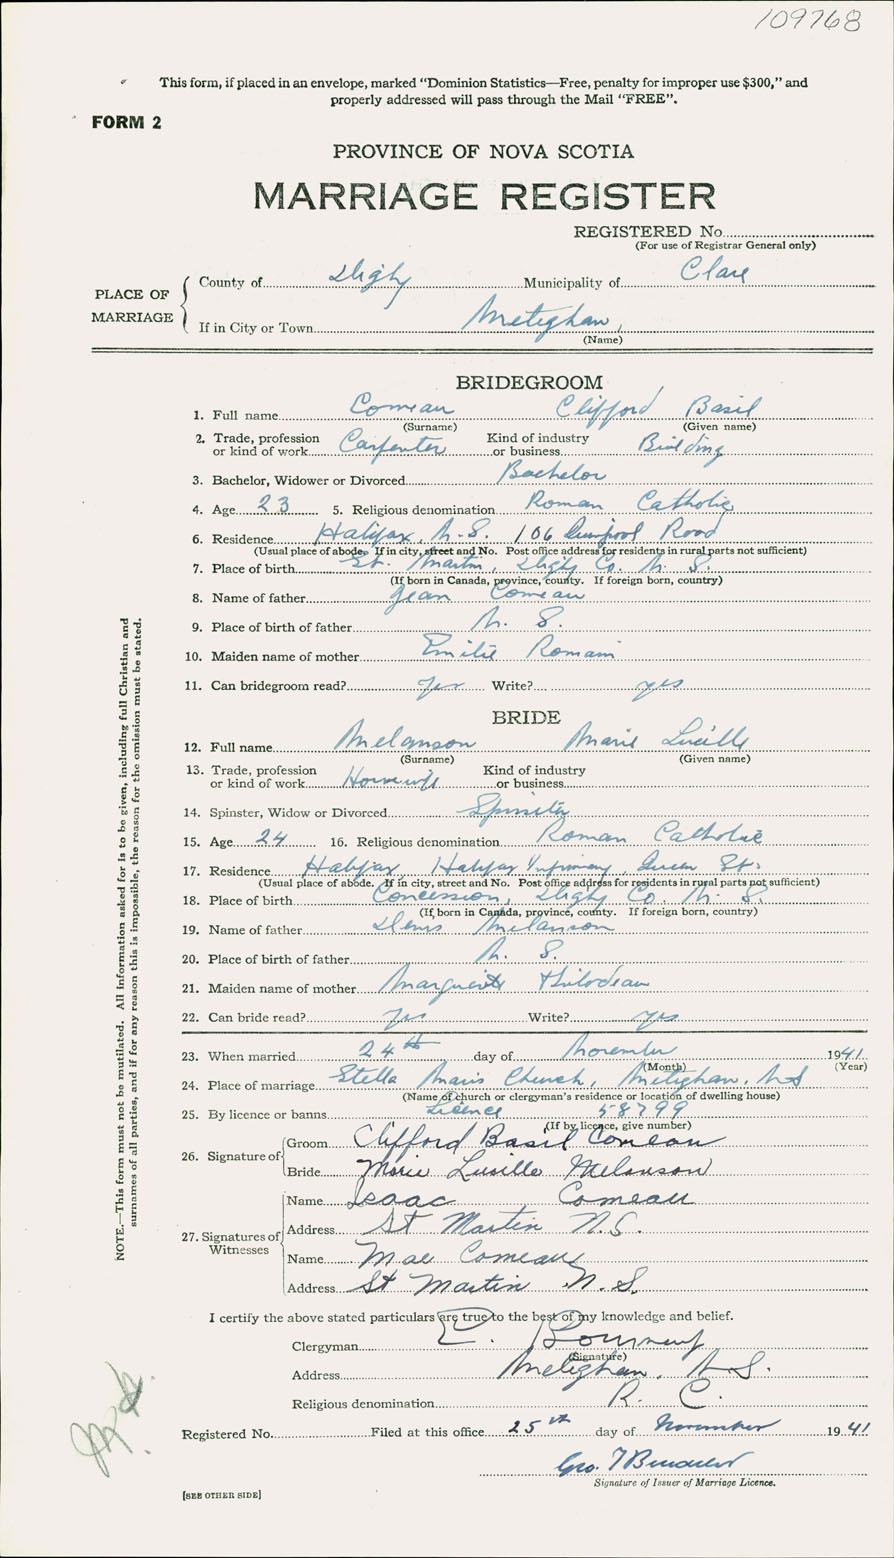 109768
This form, if placed in an envelope, marked “Dominion Statistics—Free, penalty for improper use $300,” and
properly addressed will pass through the Mail “FREE”.
FORM 2
PROVINCE OF NOVA SCOTIA
MARRIAGE REGISTER
REGISTERED No.
(For use of Registrar General only)
PLACE OF MARRIAGE
County of Digby Municipality of Clare
If in City or Town Meteghan,
(Name)
BRIDEGROOM
1. Full name Comeau Clifford Basil
(Surname) (Given name)
2. Trade, profession or kind of work Carpenter Kind of industry or business Building
3. Bachelor, Widower or Divorced Bachelor
4. Age 23 5. Religious denomination Roman Catholic
6. Residence Halifax, N.S. 106 Liverpool Road
(Usual place of abode. If in city, street and No. Post office address for residents in rural parts not sufficient)
7. Place of birth St. Martin, Digby Co. N. S.
(If born in Canada, province, county. If foreign born, country)
8. Name of father Jean Comeau
9. Place of birth of father N. S.
10. Maiden name of mother Emilie
11. Can bridegroom read? yes Write? yes
BRIDE
12. Full name Melanson Marie Lucille
(Surname) (Given name)
13. Trade, profession or kind of work Housewife Kind of industry or business
14. Spinster, Widow or Divorced Spinster
15. Age 24 16. Religious denomination Roman Catholic
17. Residence Halifax Halifax Infirmary, Queen St.
(Usual place of abode. If in city, street and No. Post office address for residents in rural parts not sufficient)
18. Place of birth Concession, Digby Co. N. S.
(If born in Canada, province, county. If foreign born, country)
19. Name of father Denis Melanson
20. Place of birth of father N. S.
21. Maiden name of mother Marguerite Thibodeau
22. Can bride read? yes Write? yes
23. When married 24th day of November 1941
(Month) (Year)
24. Place of marriage Stella Maris Church, Meteghan, N.S
(Name of church or clergyman's residence or location of dwelling house)
25. By licence or banns Licence 58799
(If by licence, give number)
26. Signature of
Groom Clifford Basil Comeau
Bride Marie Lucille Melanson
27. Signatures of Witnesses
Name Isaac Comeau
Address St Martin N.S.
Name Mae Comeau
Address St Martin N.S.
I certify the above stated particulars are true to the best of my knowledge and belief.
Clergyman E. Bourneuf
(Signature)
Address Meteghan, N.S.
Religious denomination R. C.
Registered No. Filed at this office 25th day of November 1941
Geo. T
Signature of Issuer of Marriage Licence.
[SEE OTHER SIDE]
NOTE.—This form must not be mutilated. All information asked for is to be given, including full Christian and
surnames of all parties, and if for any reason this is impossible, the reason for the omission must be stated.